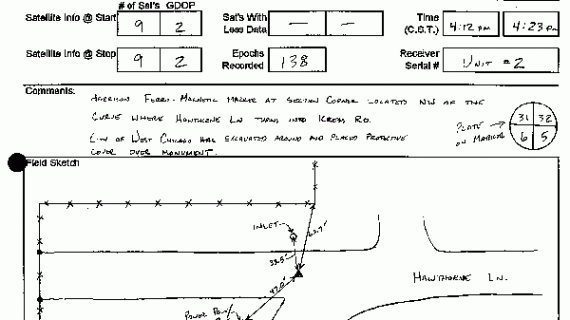 # of Sat's GDOP
Satellite Info @ Start 9 2
Sat's With Loss Data — —
Time (C.O.T.) 4:12 PM 4:23 PM
Satellite Info @ Stop 9 2
Epochs Recorded 138
Receiver Serial # UNIT #2
Comments:
HARRISON FERRO-MAGNETIC MARKER AT SECTION CORNER LOCATED NW OF THE
CURVE WHERE HAWTHORNE LN TURNS INTO KRESS RD.
CITY OF WEST CHICAGO HAS EXCAVATED AROUND AND PLACED PROTECTIVE
COVER OVER MONUMENT.
PLATE ON MARKER
31 32
6 5
Field Sketch
INLET
33.5'
47.0'
HAWTHORNE LN.
POWER